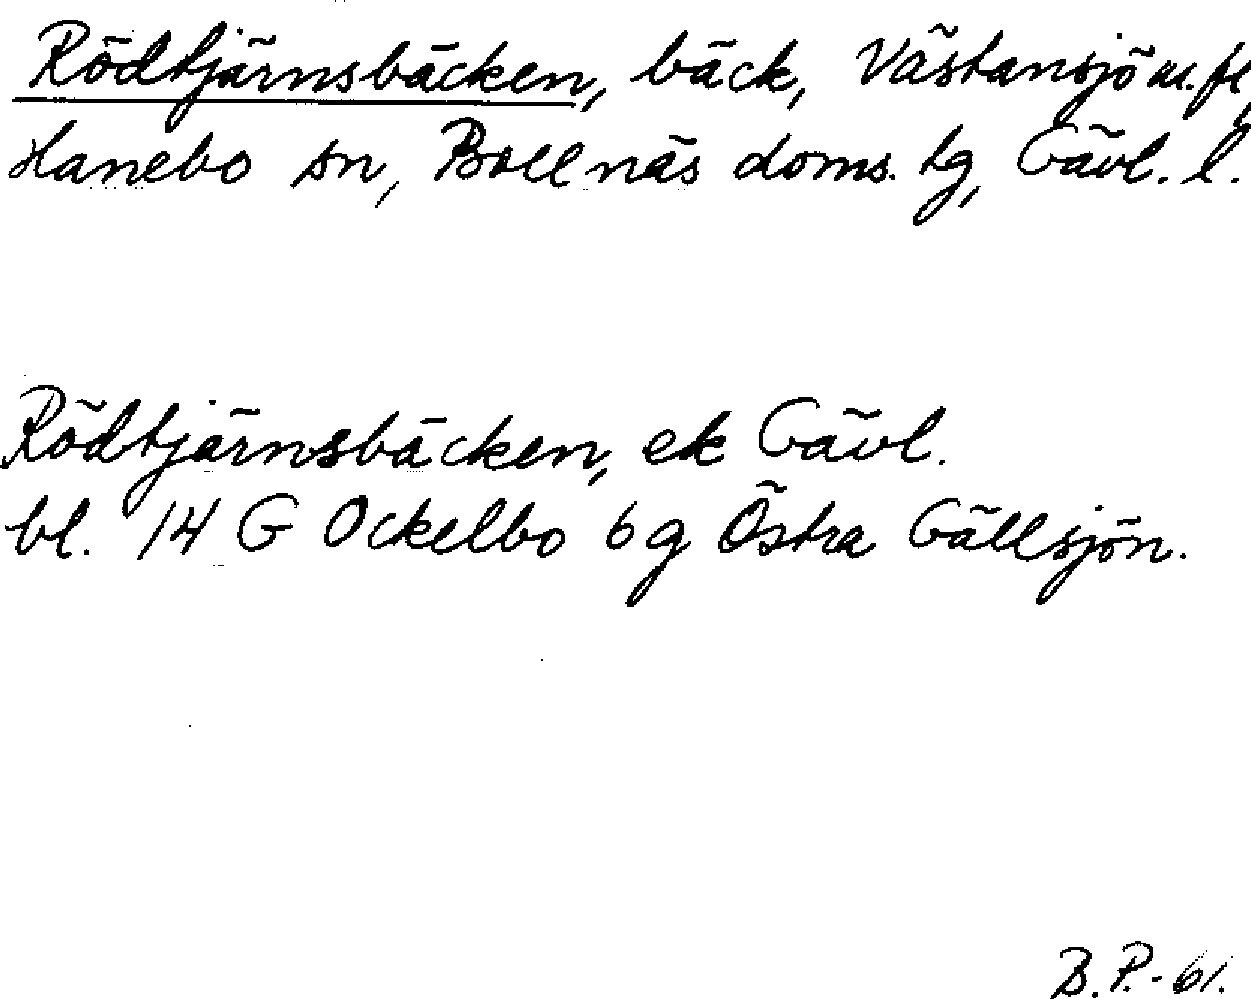 Rödtjärnsbäcken, bäck, Västansjö m.fl,
Hanebo sn, Bollnäs doms. tg, Gävl. l.
Rödtjärnsbäcken, ek Gävl.
bl. 14 G Ockelbo 6 g Östra Gällsjön.
B.P.-61.